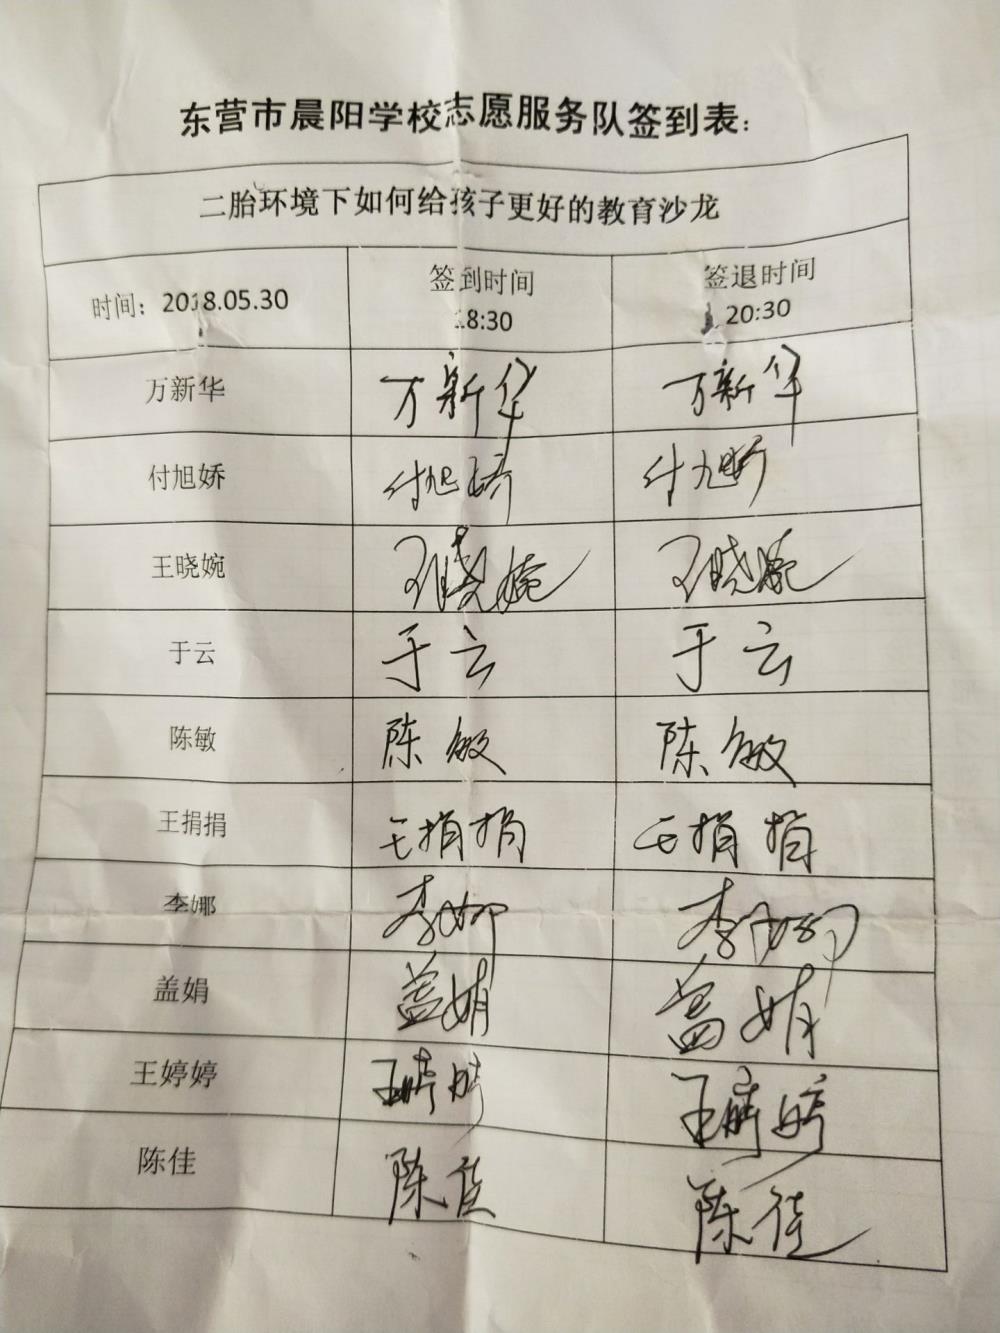 东营市晨阳学校志愿服务队签到表：
二胎环境下如何给孩子更好的教育沙龙
时间：2018.05.30 签到时间 18:30 签退时间 20:30
万新华 万新华 万新华
付旭娇 付旭娇 付旭娇
王晓婉 王晓婉 王晓婉
于云 于云 于云
陈敏 陈敏 陈敏
王捐捐 王捐捐 王捐捐
李娜 李娜 李娜
盖娟 盖娟 盖娟
王婷婷 王婷婷 王婷婷
陈佳 陈佳 陈佳